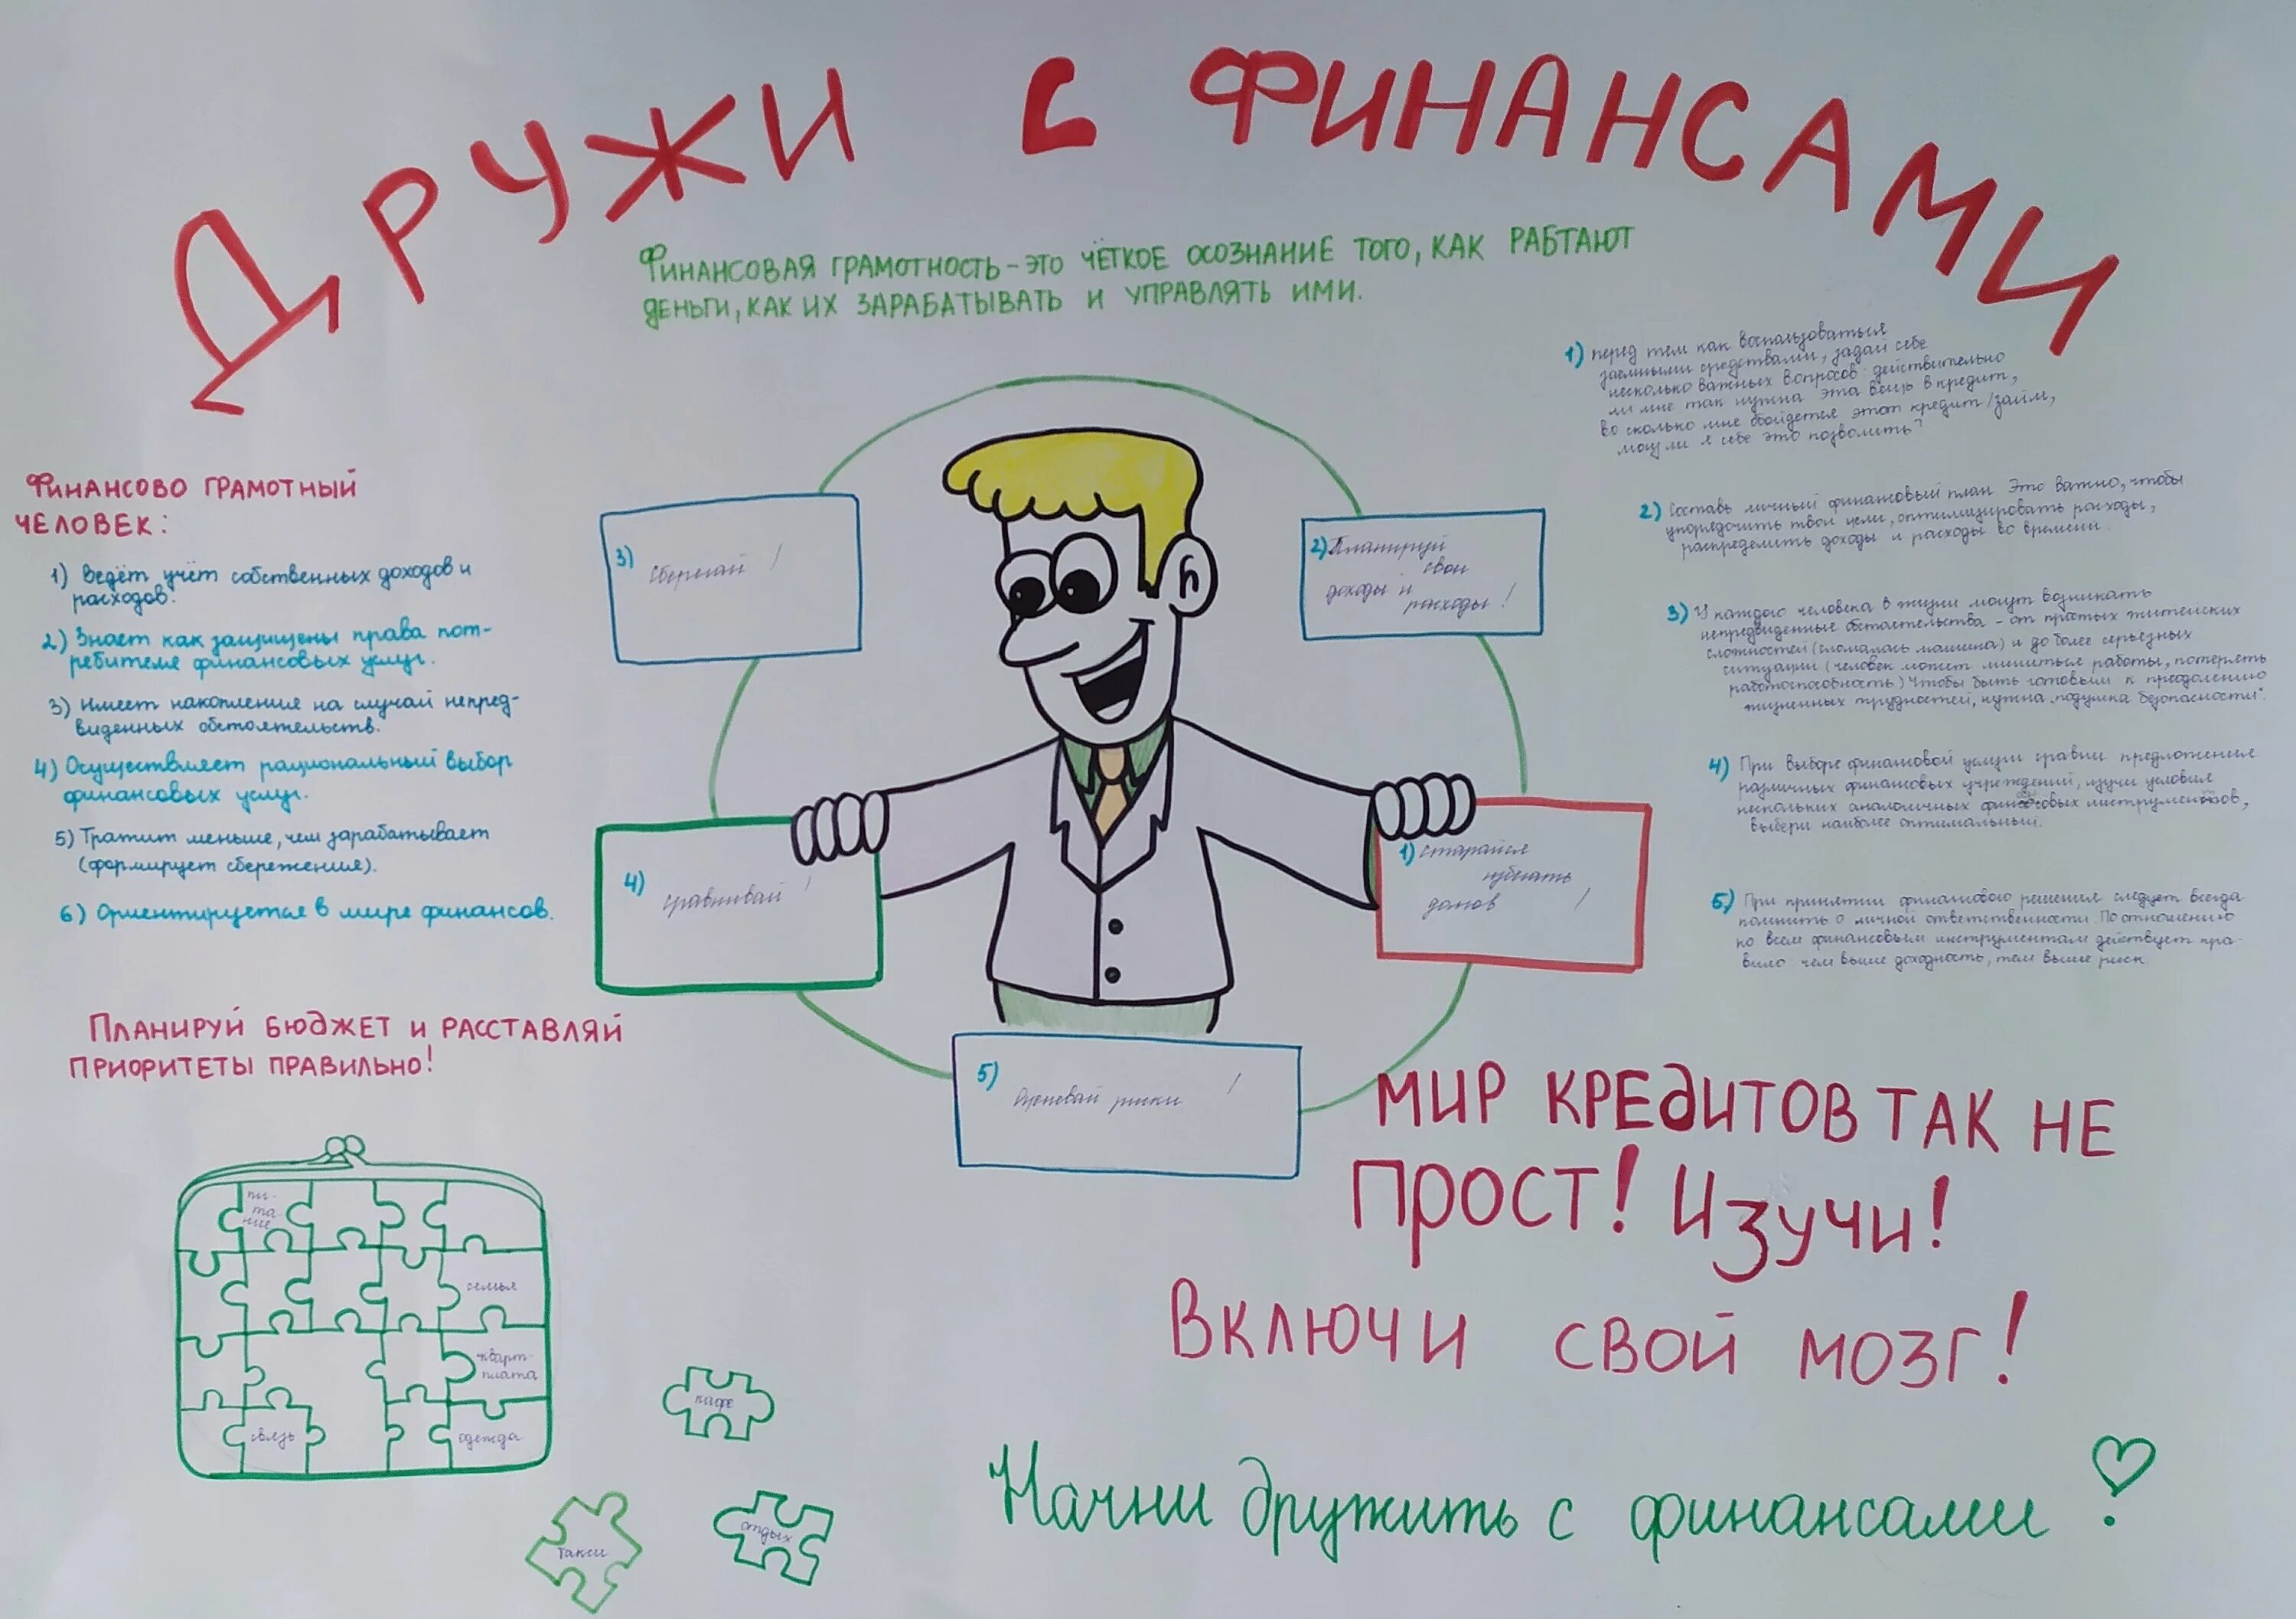 ДРУЖИ С ФИНАНСАМИ
ФИНАНСОВАЯ ГРАМОТНОСТЬ - ЭТО ЧЁТКОЕ ОСОЗНАНИЕ ТОГО, КАК РАБТАЮТ
ДЕНЬГИ, КАК ИХ ЗАРАБАТЫВАТЬ И УПРАВЛЯТЬ ИМИ.
ФИНАНСОВО ГРАМОТНЫЙ
ЧЕЛОВЕК:
1) Ведёт учёт собственных доходов и
расходов.
2) Знает как защищены права пот-
ребителя финансовых услуг.
3) Имеет накопления на случай непред-
виденных обстоятельств.
4) Осуществляет рациональный выбор
финансовых услуг.
5) Тратит меньше, чем зарабатывает
(формирует сбережения).
6) Ориентируется в мире финансов.
ПЛАНИРУЙ БЮДЖЕТ И РАССТАВЛЯЙ
ПРИОРИТЕТЫ ПРАВИЛЬНО!
пи-
та-
ние
семья
кварт-
плата
связь
одежда
кафе
такси
отдых
3) Сберегай !
2) Планируй
свои
доходы и
расходы !
4) сравнивай !
1) Старайся
избегать
долгов !
5) Оценивай риски !
1) перед тем как воспользоваться
заемными средствами, задай себе
несколько важных вопросов: действительно
ли мне так нужна эта вещь в кредит,
во сколько мне обойдется этот кредит/займ,
могу ли я себе это позволить?
2) Составь личный финансовый план Это важно, чтобы
упорядочить твои цели, оптимизировать расходы,
распределить доходы и расходы во времени.
3) У каждого человека в жизни могут возникать
непредвиденные обстоятельства - от простых житейских
сложностей (сломалась машина) и до более серьезных
ситуации (человек может лишиться работы, потерять
работоспособность) Чтобы быть готовым к преодолению
жизненных трудностей, нужна "подушка безопасности".
4) При выборе финансовой услуги сравни предложения
различных финансовых учреждений, изучи условия
нескольких аналогичных финансовых инструментов,
выбери наиболее оптимальный.
5) При принятии финансового решения следует всегда
помнить о личной ответственности. По отношению
ко всем финансовым инструментам действует пра-
вило: чем выше доходность, тем выше риск.
МИР КРЕДИТОВ ТАК НЕ
ПРОСТ! ИЗУЧИ!
ВКЛЮЧИ СВОЙ МОЗГ!
Начни дружить с финансами